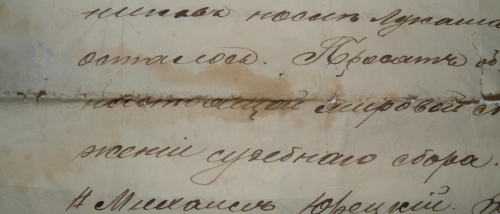 носитъ Лукаш
осталось. Просятъ об
настоящей мировой с
женіи судебнаго сбора.
Михаилъ Юрецкій.